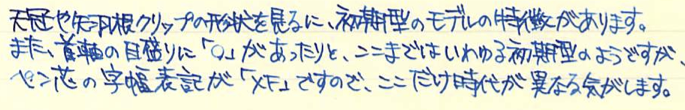 天冠や矢羽根クリップの形状を見るに、初期型のモデルの特徴があります。
また、首軸の目盛りに「0」があったりと、ここまではいわゆる初期型のようですが、
ペン芯の字幅表記が「XF」ですので、ここだけ時代が異なる気がします。